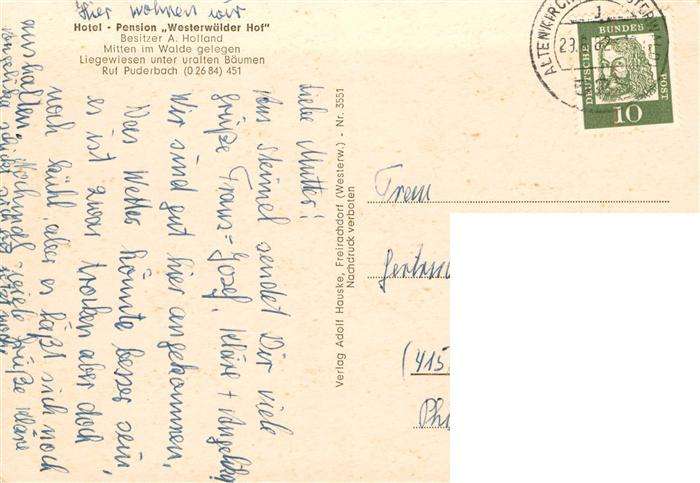 Hier wohnen wir
Hotel - Pension „Westerwälder Hof"
Besitzer A. Holland
Mitten im Walde gelegen
Liegewiesen unter uralten Bäumen
Ruf Puderbach (0 26 84) 451
Liebe Mutter!
Aus Steimel sendet Dir viele
Grüße Franz=Josef, Kläre + Angelika
Wir sind gut hier angekommen,
Das Wetter könnte besser sein,
es ist zwar trocken aber doch
noch kühl, aber es läßt sich noch
aushalten. Nochmal viele Grüße Kläre
Verlag Adolf Hauske, Freirachdorf (Westerw.) - Nr. 3551
Nachdruck verboten
ALTENKIRCHEN
DEUTSCHE BUNDESPOST
10
Frau
Gertrud
(415